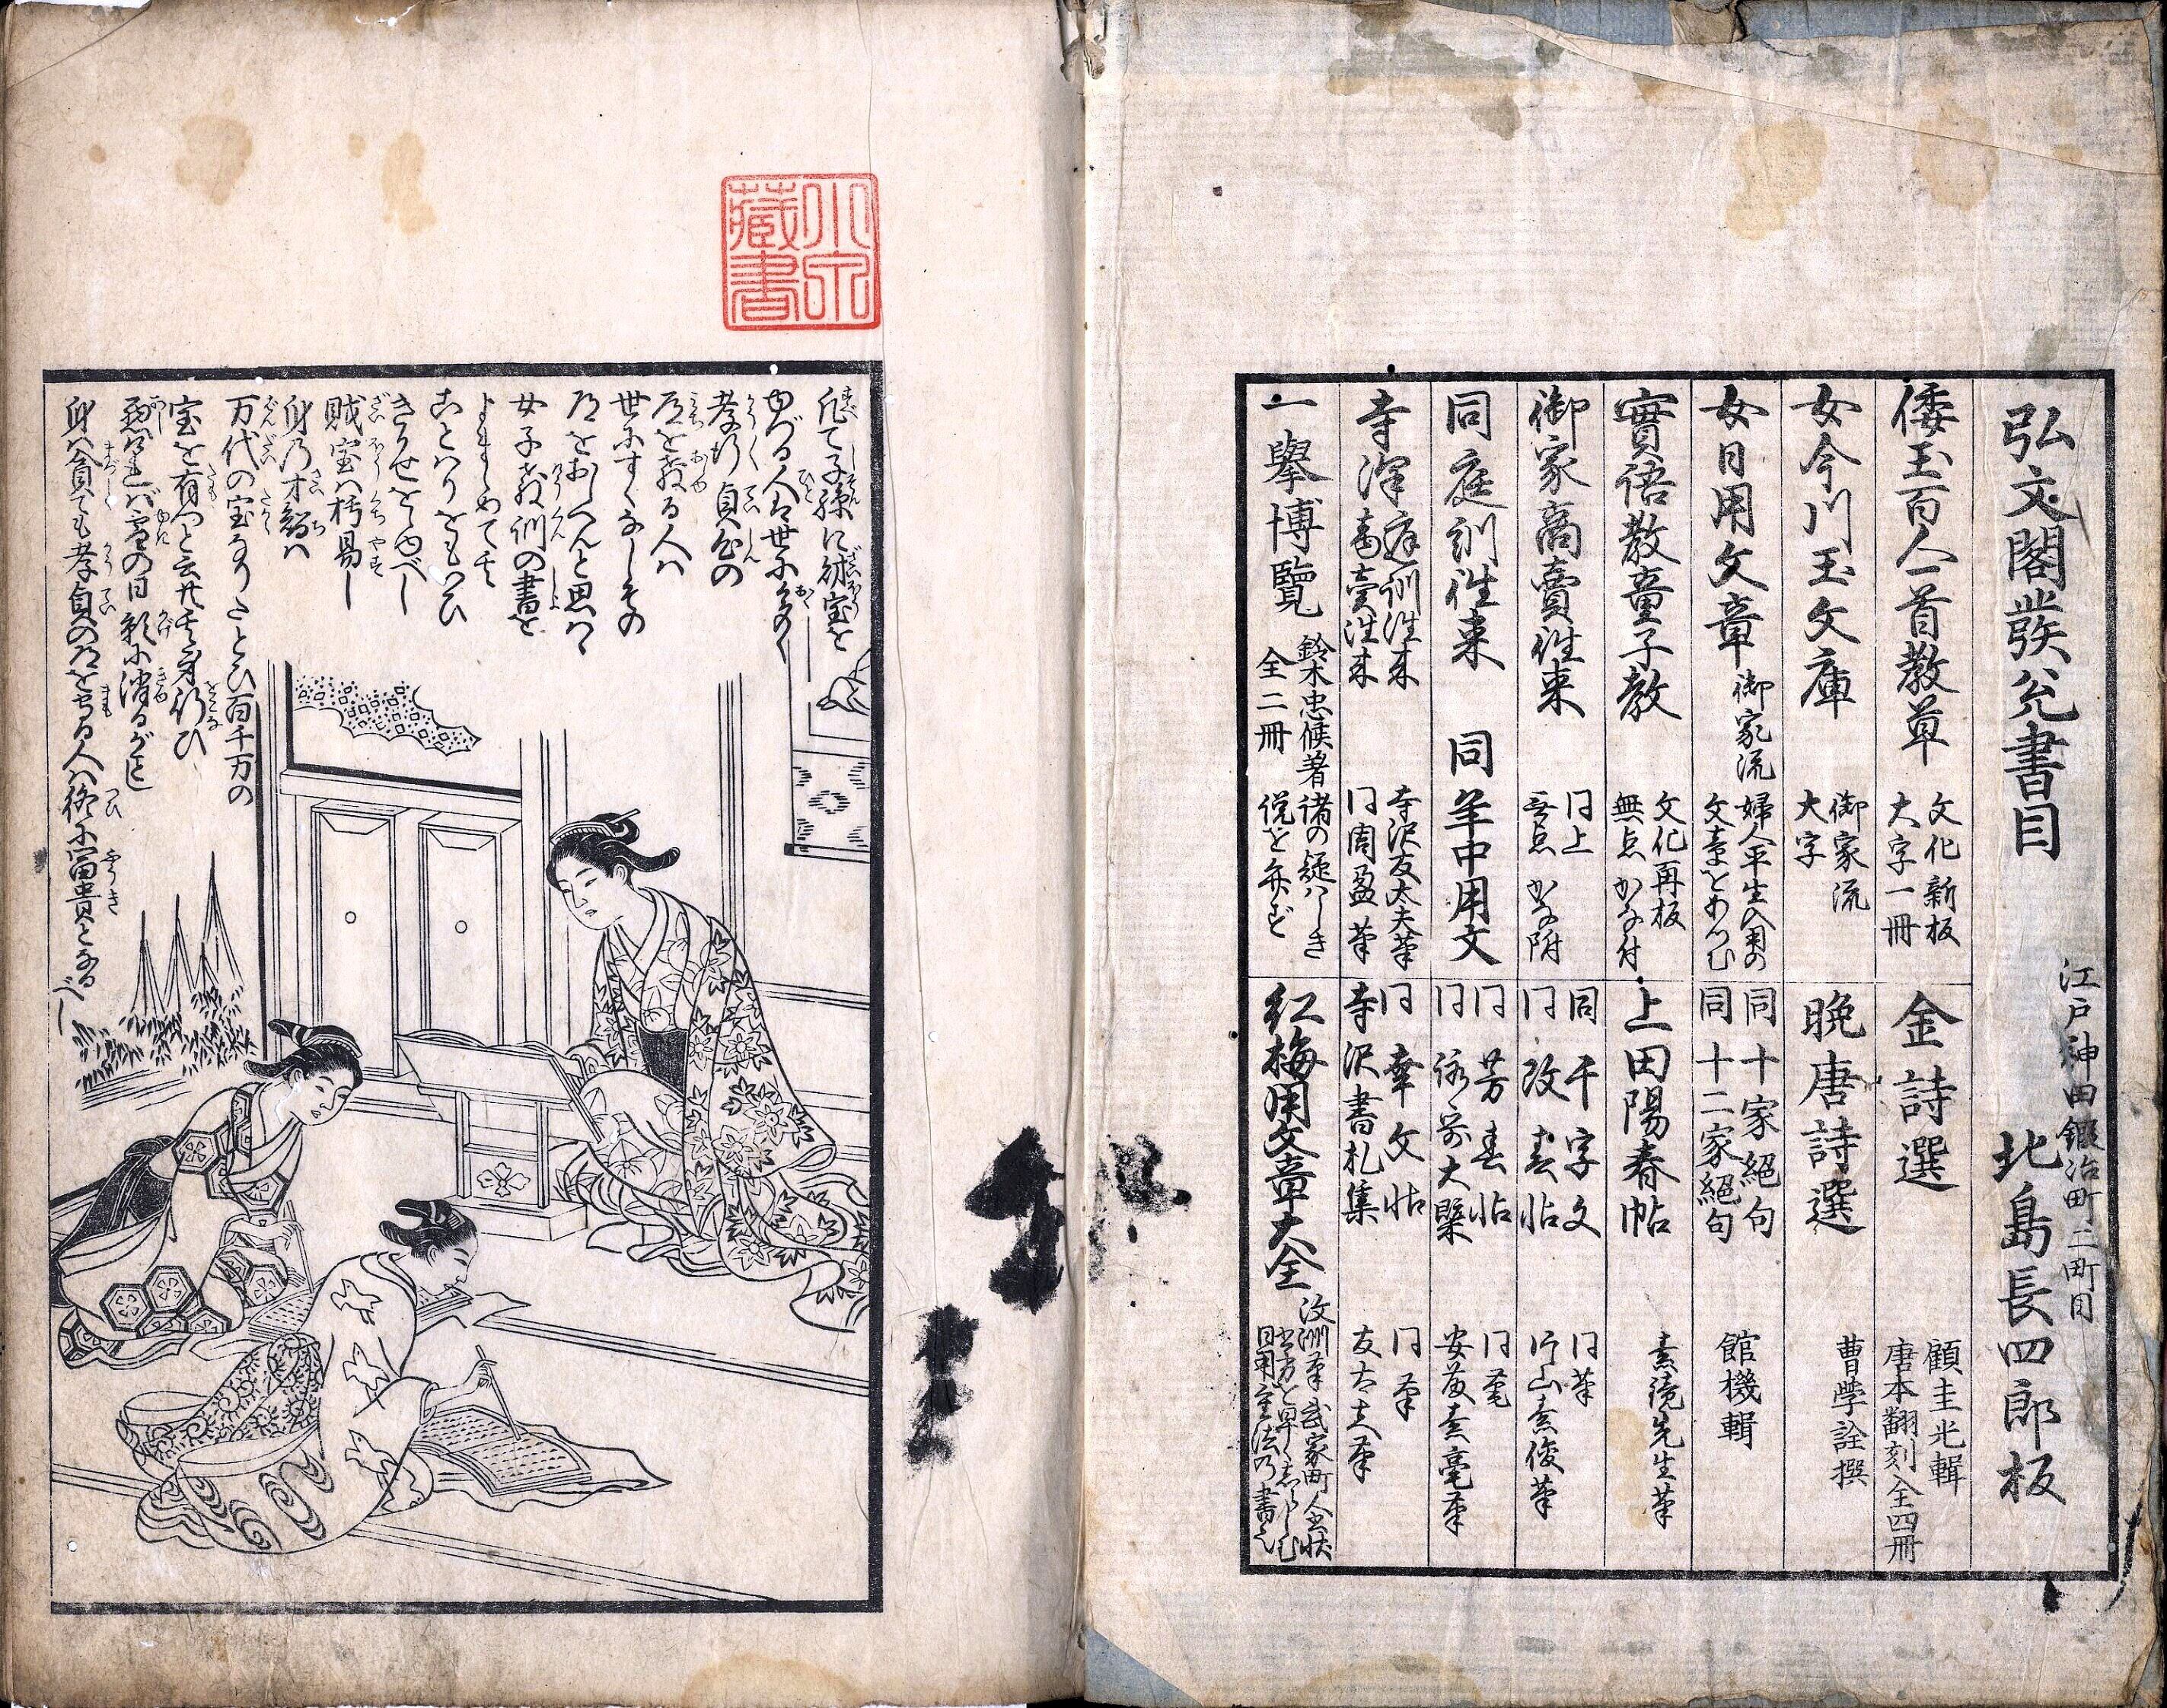 弘文閣發兌書目
江戸神田鍜冶町二町目
北島長四郎板
倭玉百人一首教草
文化新板
大字一冊
金詩選
顧圭光輯
唐本翻刻全四冊
女今川玉文庫
御家流
大字
晩唐詩選
曹學詮撰
女日用文章
御家流
婦人平生入用の
文章をあつむ
同十家絕句
同十二家絕句
館機輯
實語教童子教
文化再板
無点かな付
上田陽春帖
素鏡先生筆
御家商賣徃来
同上
無点かな附
同千字文
同改春帖
同筆
片山素俊筆
同庭訓徃来
同年中用文
同芳春帖
同詠哥大槩
同筆
安藤素亳筆
寺澤庭訓徃来
寺澤商賣徃来
寺沢友太夫筆
同周盈筆
同幸文帖
寺沢書札集
同筆
友太夫筆
一擧博覽
鈴木忠候著
全二冊
諸の疑ハしき
説を弁ず
紅梅用文章大全
小宗
藏書
凡て子孫に財宝を
ゆづる人ハ世に多く
孝行貞心の
道を教る人ハ
世にすくなしその
道をおしへんと思ハヾ
女子教訓の書を
よましめて其
ことハりをもつひ
きかせをくべし
賎宝ハ朽易し
身の才智ハ
万代の宝なりたとひ百千万の
宝を有つと云共其身行ひ
惡ければ雪の日影に消るがごとし
身ハ貧ても孝貞の道をまもる人ハ終に冨貴となる
べし